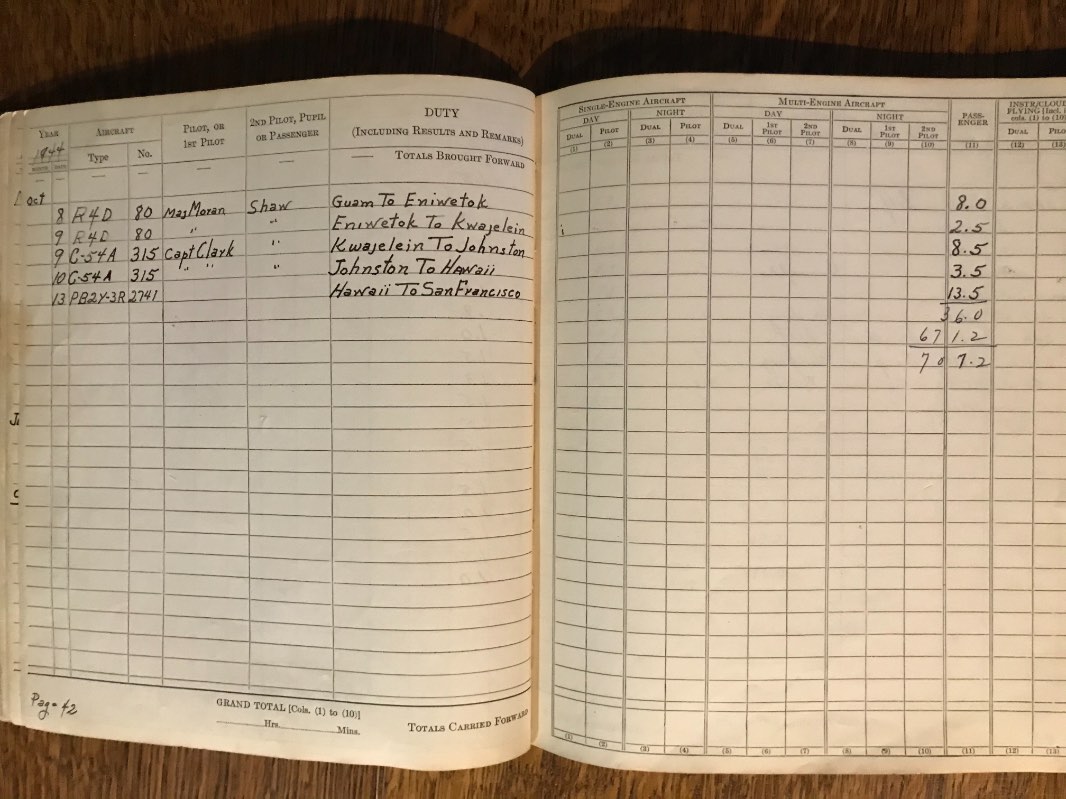 YEAR AIRCRAFT PILOT, OR 1ST PILOT 2ND PILOT, PUPIL OR PASSENGER DUTY (INCLUDING RESULTS AND REMARKS)
1944 Type No. TOTALS BROUGHT FORWARD
MONTH DATE — — — — ——
Oct
8 R4D 80 Maj Moran Shaw Guam To Eniwetok
9 R4D 80 " " Eniwetok To Kwajelein
9 C-54A 315 Capt Clark " Kwajelein To Johnston
10 C-54A 315 " " " Johnston To Hawaii
13 PB2Y-3R 2741 Hawaii To San Francisco
Page 42
GRAND TOTAL [Cols. (1) to (10)]
Hrs. Mins.
TOTALS CARRIED FORWARD
SINGLE-ENGINE AIRCRAFT MULTI-ENGINE AIRCRAFT PASS-ENGER INSTR/CLOUD FLYING [Incl. in cols. (1) to (10)]
DAY NIGHT DAY NIGHT
DUAL PILOT DUAL PILOT DUAL 1ST PILOT 2ND PILOT DUAL 1ST PILOT 2ND PILOT DUAL PILOT
(1) (2) (3) (4) (5) (6) (7) (8) (9) (10) (11) (12) (13)
8.0
2.5
8.5
3.5
13.5
36.0
671.2
707.2
(1) (2) (3) (4) (5) (6) (7) (8) (9) (10) (11) (12) (13)